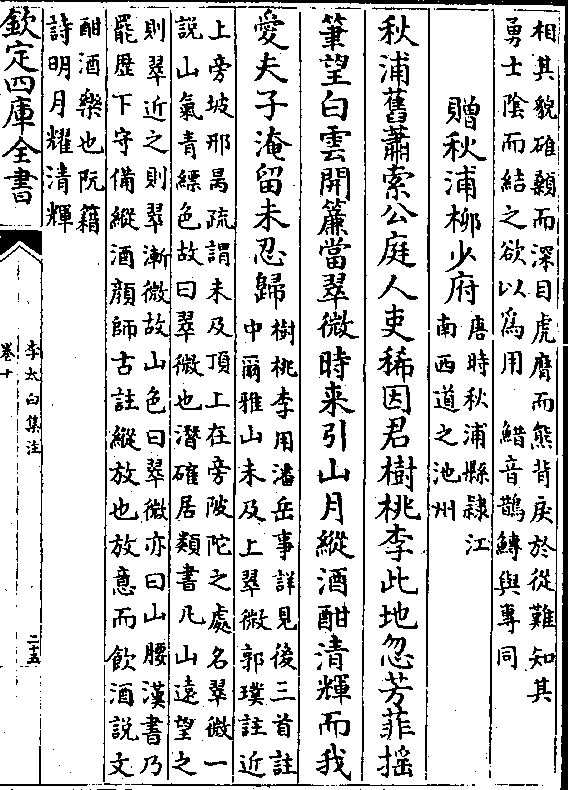 相其貌碓顙而深目虎膺而熊背戾於從難知其
勇士隂而結之欲以為用　䱜音鵲鱄與專同
贈秋浦柳少府唐時秋浦縣隷江
南西道之池州
秋浦舊蕭索公庭人吏稀因君樹桃李此地忽芳菲揺
筆望白雲開簾當翠微時来引山月縱酒酣清輝而我
愛夫子淹留未忍歸樹桃李用潘岳事詳見後三首註
中爾雅山未及上翠微郭璞註近
上旁坡邢昺疏謂未及頂上在旁陂陀之處名翠微一
說山氣青縹色故曰翠微也潛確居類書凡山遠望之
則翠近之則翠漸微故山色曰翠微亦曰山腰漢書乃
罷歴下守備縱酒顔師古註縱放也放意而飲酒説文
酣酒樂也阮籍
詩明月耀清輝
欽定四庫全書
李太白集注
卷十
二十五